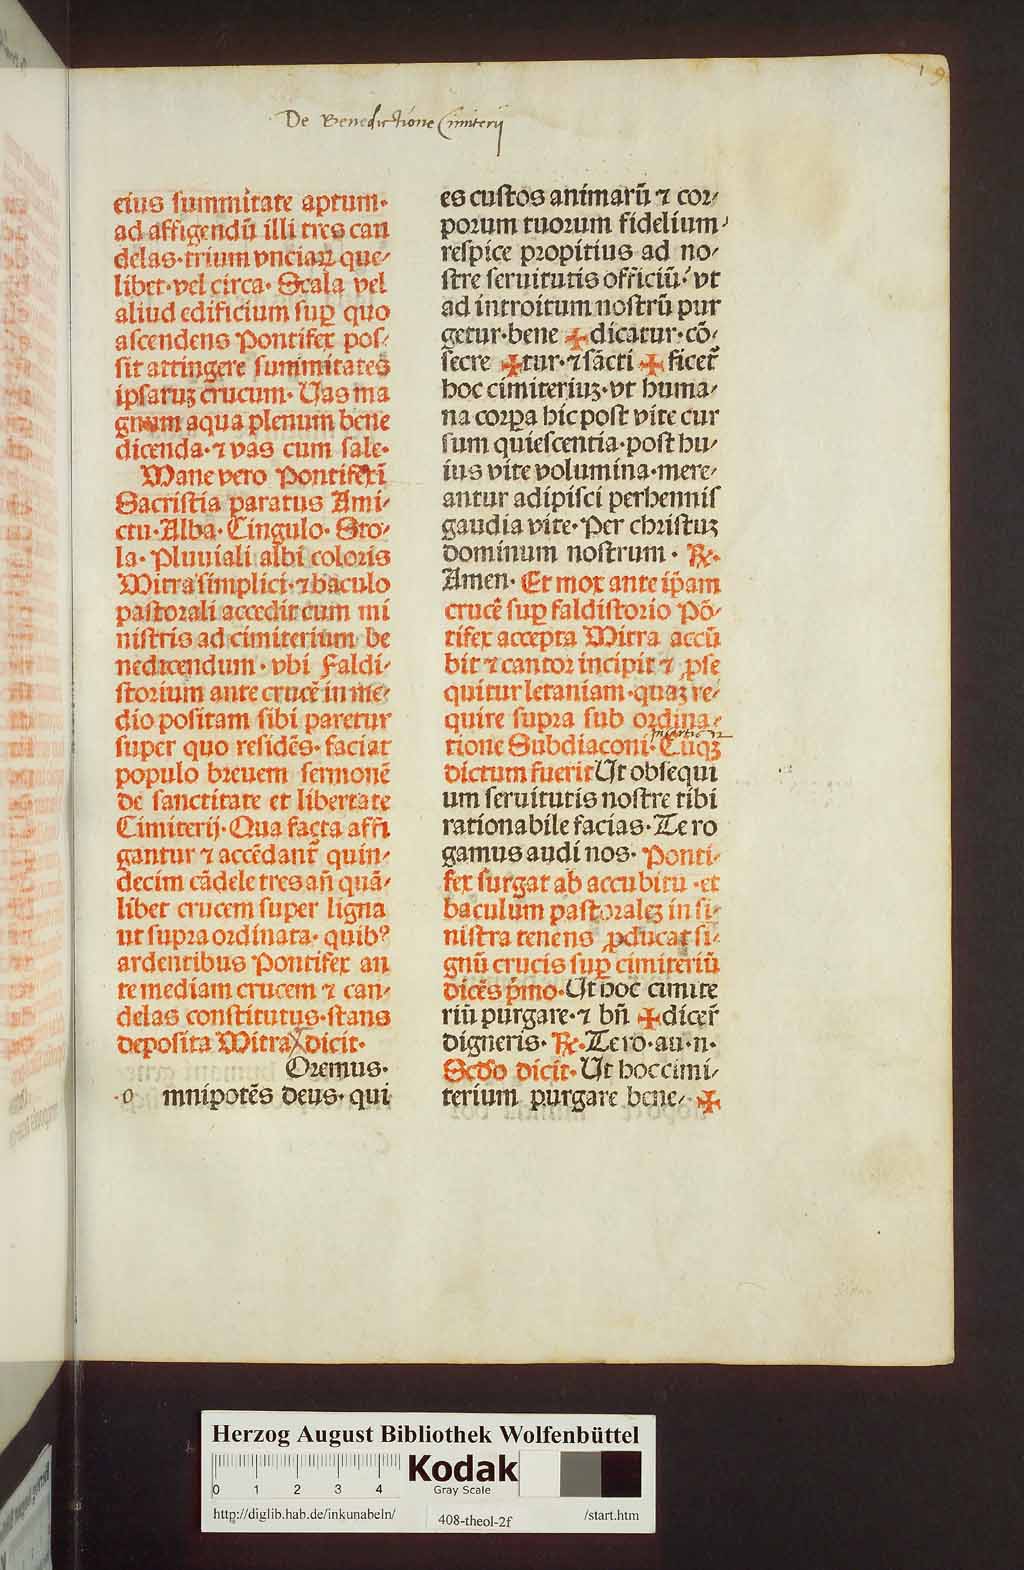 De Benedictione Cimiterij
19
eius summitate aptum·
ad affigendū illi tres can
delas·trium vnciaꝝ que⸗
libet·vel circa· Scala vel
aliud edificium suꝑ quo
ascendens Pontifex pos⸗
sit attingere summitates
ipsaruꝫ crucum· Uas ma
gnum aqua plenum bene
dicenda·⁊ vas cum sale·
Mane vero Pontifex ī
Sacristia paratus Ami⸗
ctu·Alba·Cingulo·Sto⸗
la·Pluuiali albi coloris
Mitra simplici·⁊ baculo
pastorali accedit cum mi
nistris ad cimiterium be
nedicendum·vbi Faldi⸗
storium ante crucē in me⸗
dio positam sibi paretur
super quo residēs·faciat
populo breuem sermonē
de sanctitate et libertate
Cimiterij·Qua facta affi
gantur ⁊ accēdant̄ quin⸗
decim cādele tres an̄ quā⸗
libet crucem super ligna
ut supra ordinata·quibꝰ
ardentibus Pontifex an
te mediam crucem ⁊ can⸗
delas constitutus·stans
deposita Mitra dicit·
Oremus·
·o· mnipotēs deus·qui
es custos animarū ⁊ cor⸗
porum tuorum fidelium
respice propitius ad no⸗
stre seruitutis officiū·vt
ad introitum nostrū pur
getur·bene ✠ dicatur·cō⸗
secre ✠ tur·⁊ sācti ✠ ficet̄
hoc cimiteriuꝫ·vt huma⸗
na corꝑa hic post vite cur
sum quiescentia·post hu⸗
ius vite volumina·mere⸗
antur adipisci perhennis
gaudia vite·Per christuꝫ
dominum nostrum· ℞·
Amen· Et mox ante ip̄am
crucē suꝑ faldistorio Pō⸗
tifex accepta Mitra accū
bit ⁊ cantor incipit ⁊ ꝓse
quitur letaniam·quaꝫ re⸗
quire supra sub ordina⸗
tione Subdiaconi·Cuqꝫ
dictum fuerit Ut obsequi
um seruitutis nostre tibi
rationabile facias·Te ro
gamus audi nos· Ponti⸗
fex surgat ab accubitu·et
baculum pastoraleꝫ in si⸗
nistra tenens ꝓducat si⸗
gnū crucis suꝑ cimiteriū
dicēs p̄mo·Ut hoc cimite
riū purgare·⁊ bn̄ ✠ dicer̄
digneris· ℞·Te ro·au·n·
Scd̄o dicit·Ut hoc cimi⸗
terium purgare bene⸗ ✠
Herzog August Bibliothek Wolfenbüttel
0 1 2 3 4
Kodak
Gray Scale
http://diglib.hab.de/inkunabeln/
408-theol-2f
/start.htm